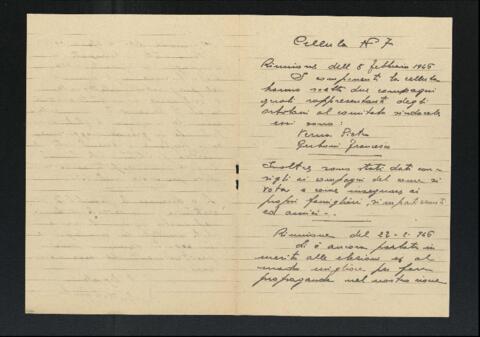 Cellula N° 7
Riunione dell 8 febbraio 1946
I componenti la cellula
hanno scelto due compagni
quali rappresentanti degli
ortolani al comitato sindacale
essi sono:
Verna Pietro
Francesco
Inoltre sono stati dati con-
sigli ai compagni del come si
vota e come insegnare ai
propri famigliari, simpatizzanti
ed amici...
Riunione del 22-2-946
Si è ancora parlato in
merito alle elezioni ed al
modo migliore per fare
propaganda nel nostro rione